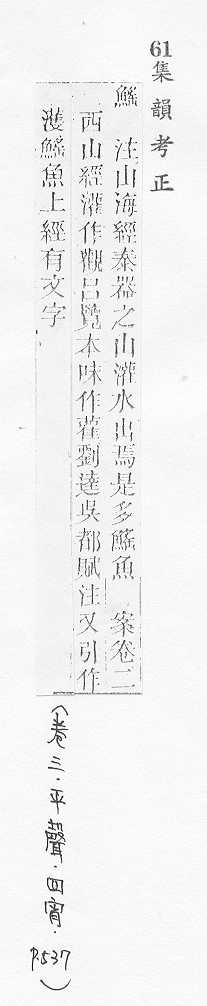 61集韻考正
鰩　注山海經泰器之山灌水出焉是多鰩魚　案卷二
西山經灌作觀呂覽本味作雚劉逵吳都賦注又引作
濩鰩魚上經有文字
(卷三．平聲．四宵．P.537)